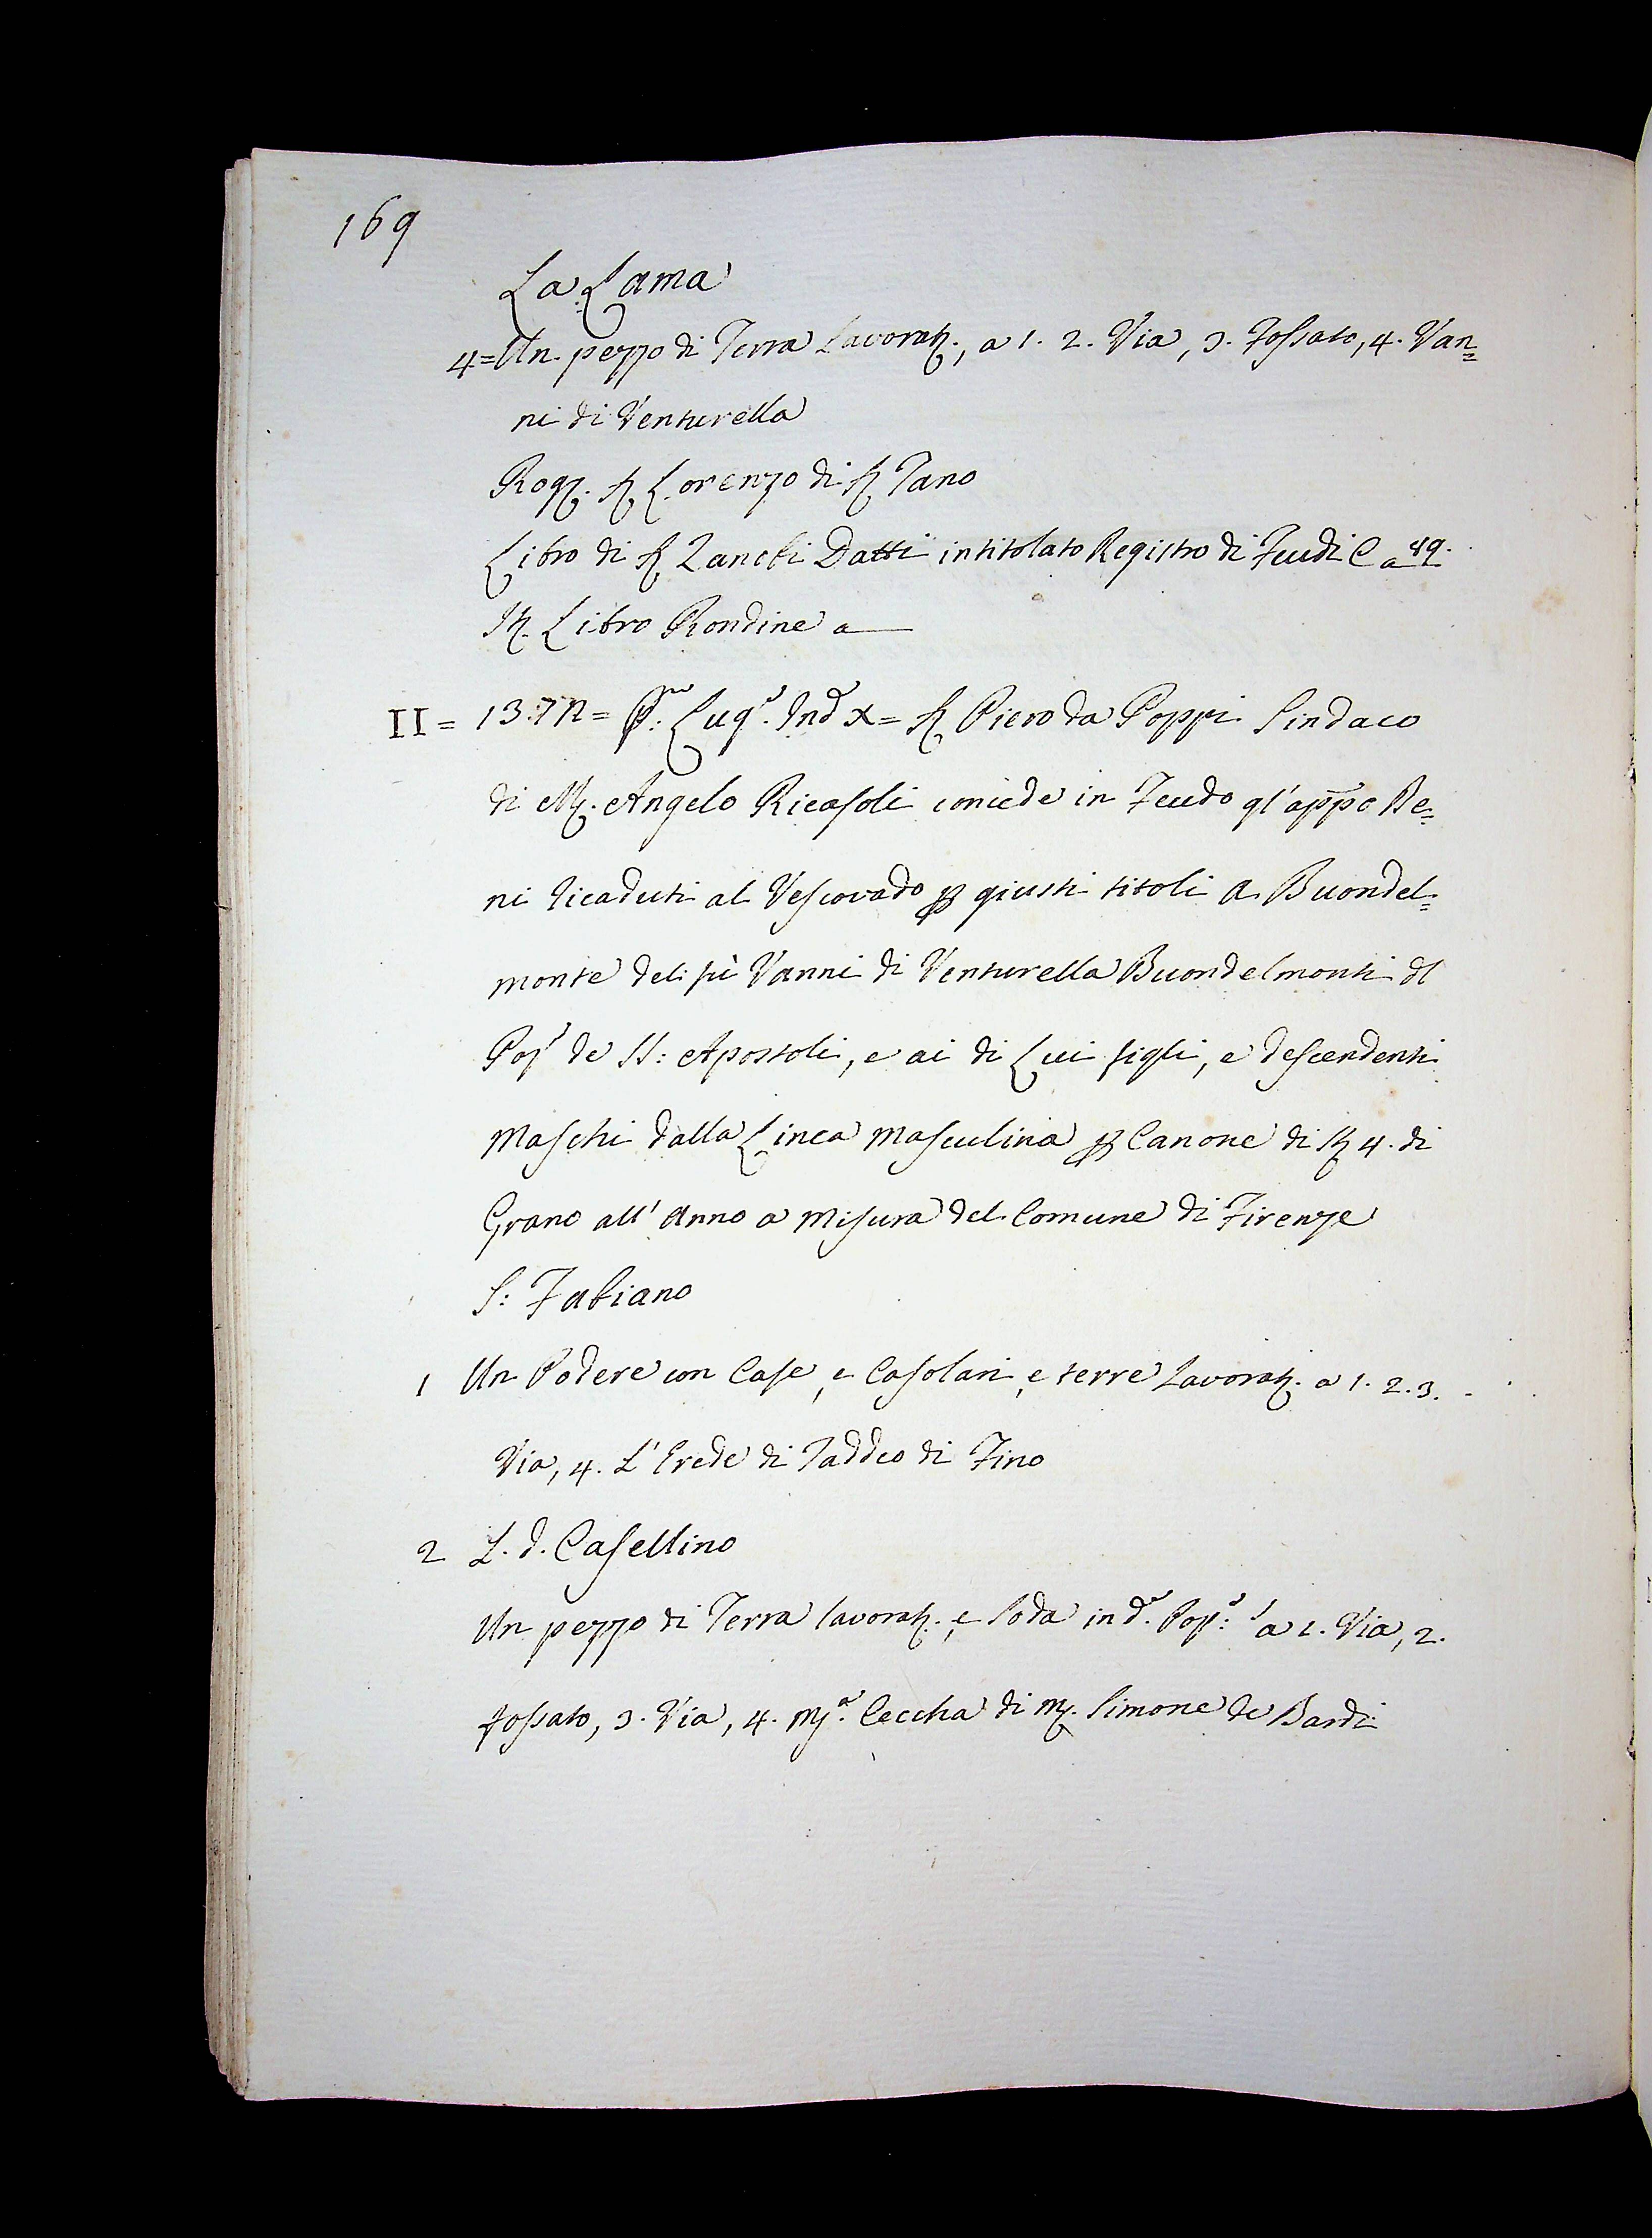 169
La Lama
4 = Un pezzo di Terra Lavorat., a 1. 2. Via, 3. Fossato, 4. Van=
ni di Venturella
Rog. S. Lorenzo di S. Tano
Libro di S. Zanobi Datti intitolato Registro di Feudi C a 49.
It. Libro Rondine a
II = 13.72 = P.mo Lug.o Ind. X = S. Piero da Poppi Sindaco
di M. Angelo Ricasoli concede in Feudo gl' appo Be=
ni ricaduti al Vescovado p giusti titoli a Buondel=
monte del fù Vanni di Venturella Buondelmonti dl
Pop.o de SS: Apostoli, e ai di Lui figli, e descendenti
Maschi dalla Linea Masculina p Canone di St 4. di
Grano all' Anno a Misura del Comune di Firenze
S: Fabiano
1 Un Podere con Case, e Casolari, e terre Lavorat. a 1. 2. 3.
Via, 4. L' Erede di Taddeo di Fino
2 L. d. Casellino
Un pezzo di Terra lavorat. e soda in d.o Pop.o a 1. Via, 2.
fossato, 3. Via, 4. M.a Ceccha di M. Simone de Bardi